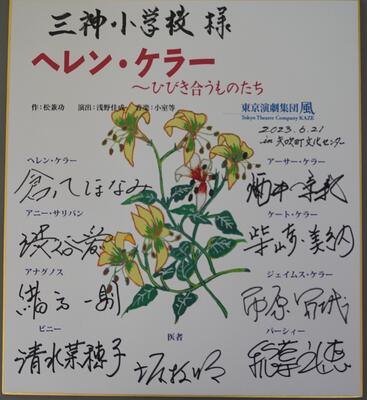 三神小学校 様
ヘレン・ケラー
〜ひびき合うものたち
作：松兼功 演出：浅野佳成 音楽：小室等
東京演劇集団 風
Tokyo Theatre Company KAZE
2023.6.21
in 矢吹町文化センター
ヘレン・ケラー
倉八ほなみ
アーサー・ケラー
アニー・サリバン
渋谷愛
ケート・ケラー
柴崎美納
アナグノス
緒方一則
ジェイムス・ケラー
ビニー
清水菜穂子
医者
坂牧明
パーシィー